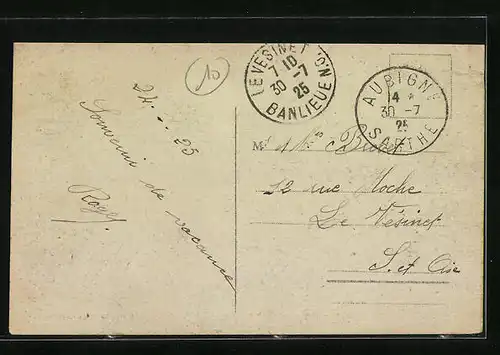 10
24 - - 25
Souvenir de vacance
Roger
LE VESINET
7 10
30 -7
25
BANLIEUE
AUBIGNÉ
14 *
30 -7
25
SARTHE
M. et Mme
12 rue Hoche
Le Vésinet
S. et Oise